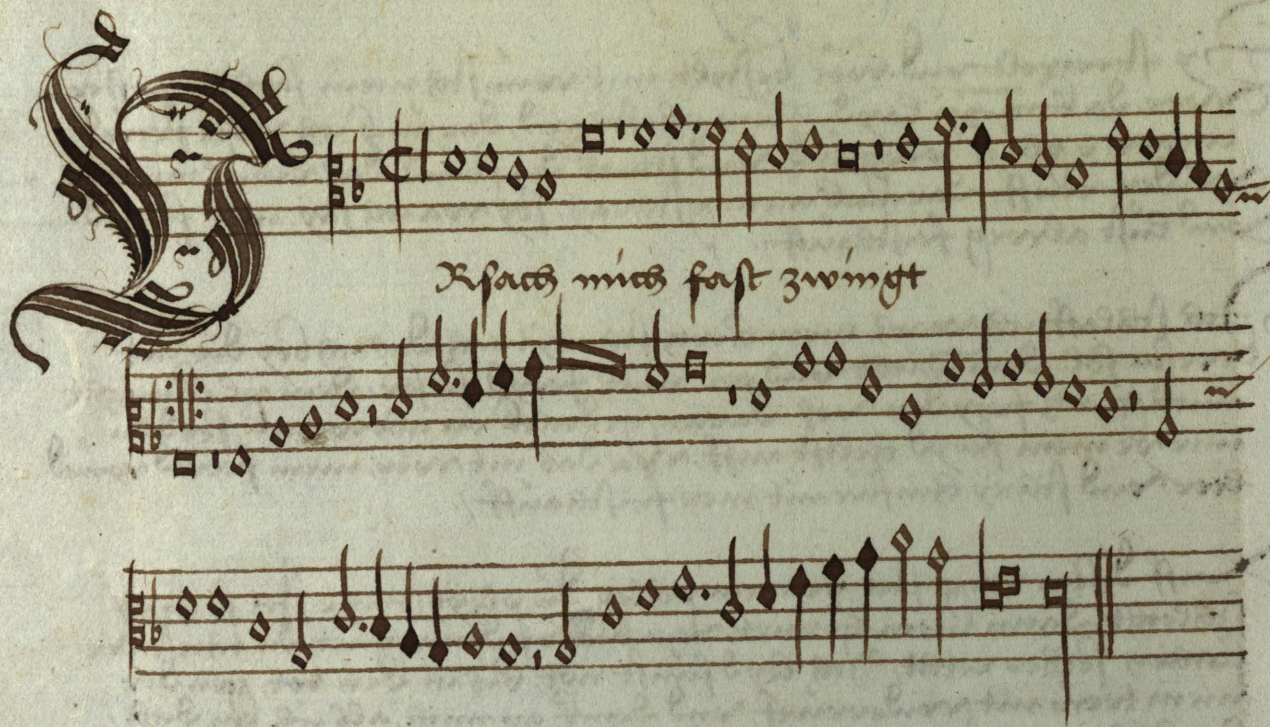 VRsach mich fast zwingt